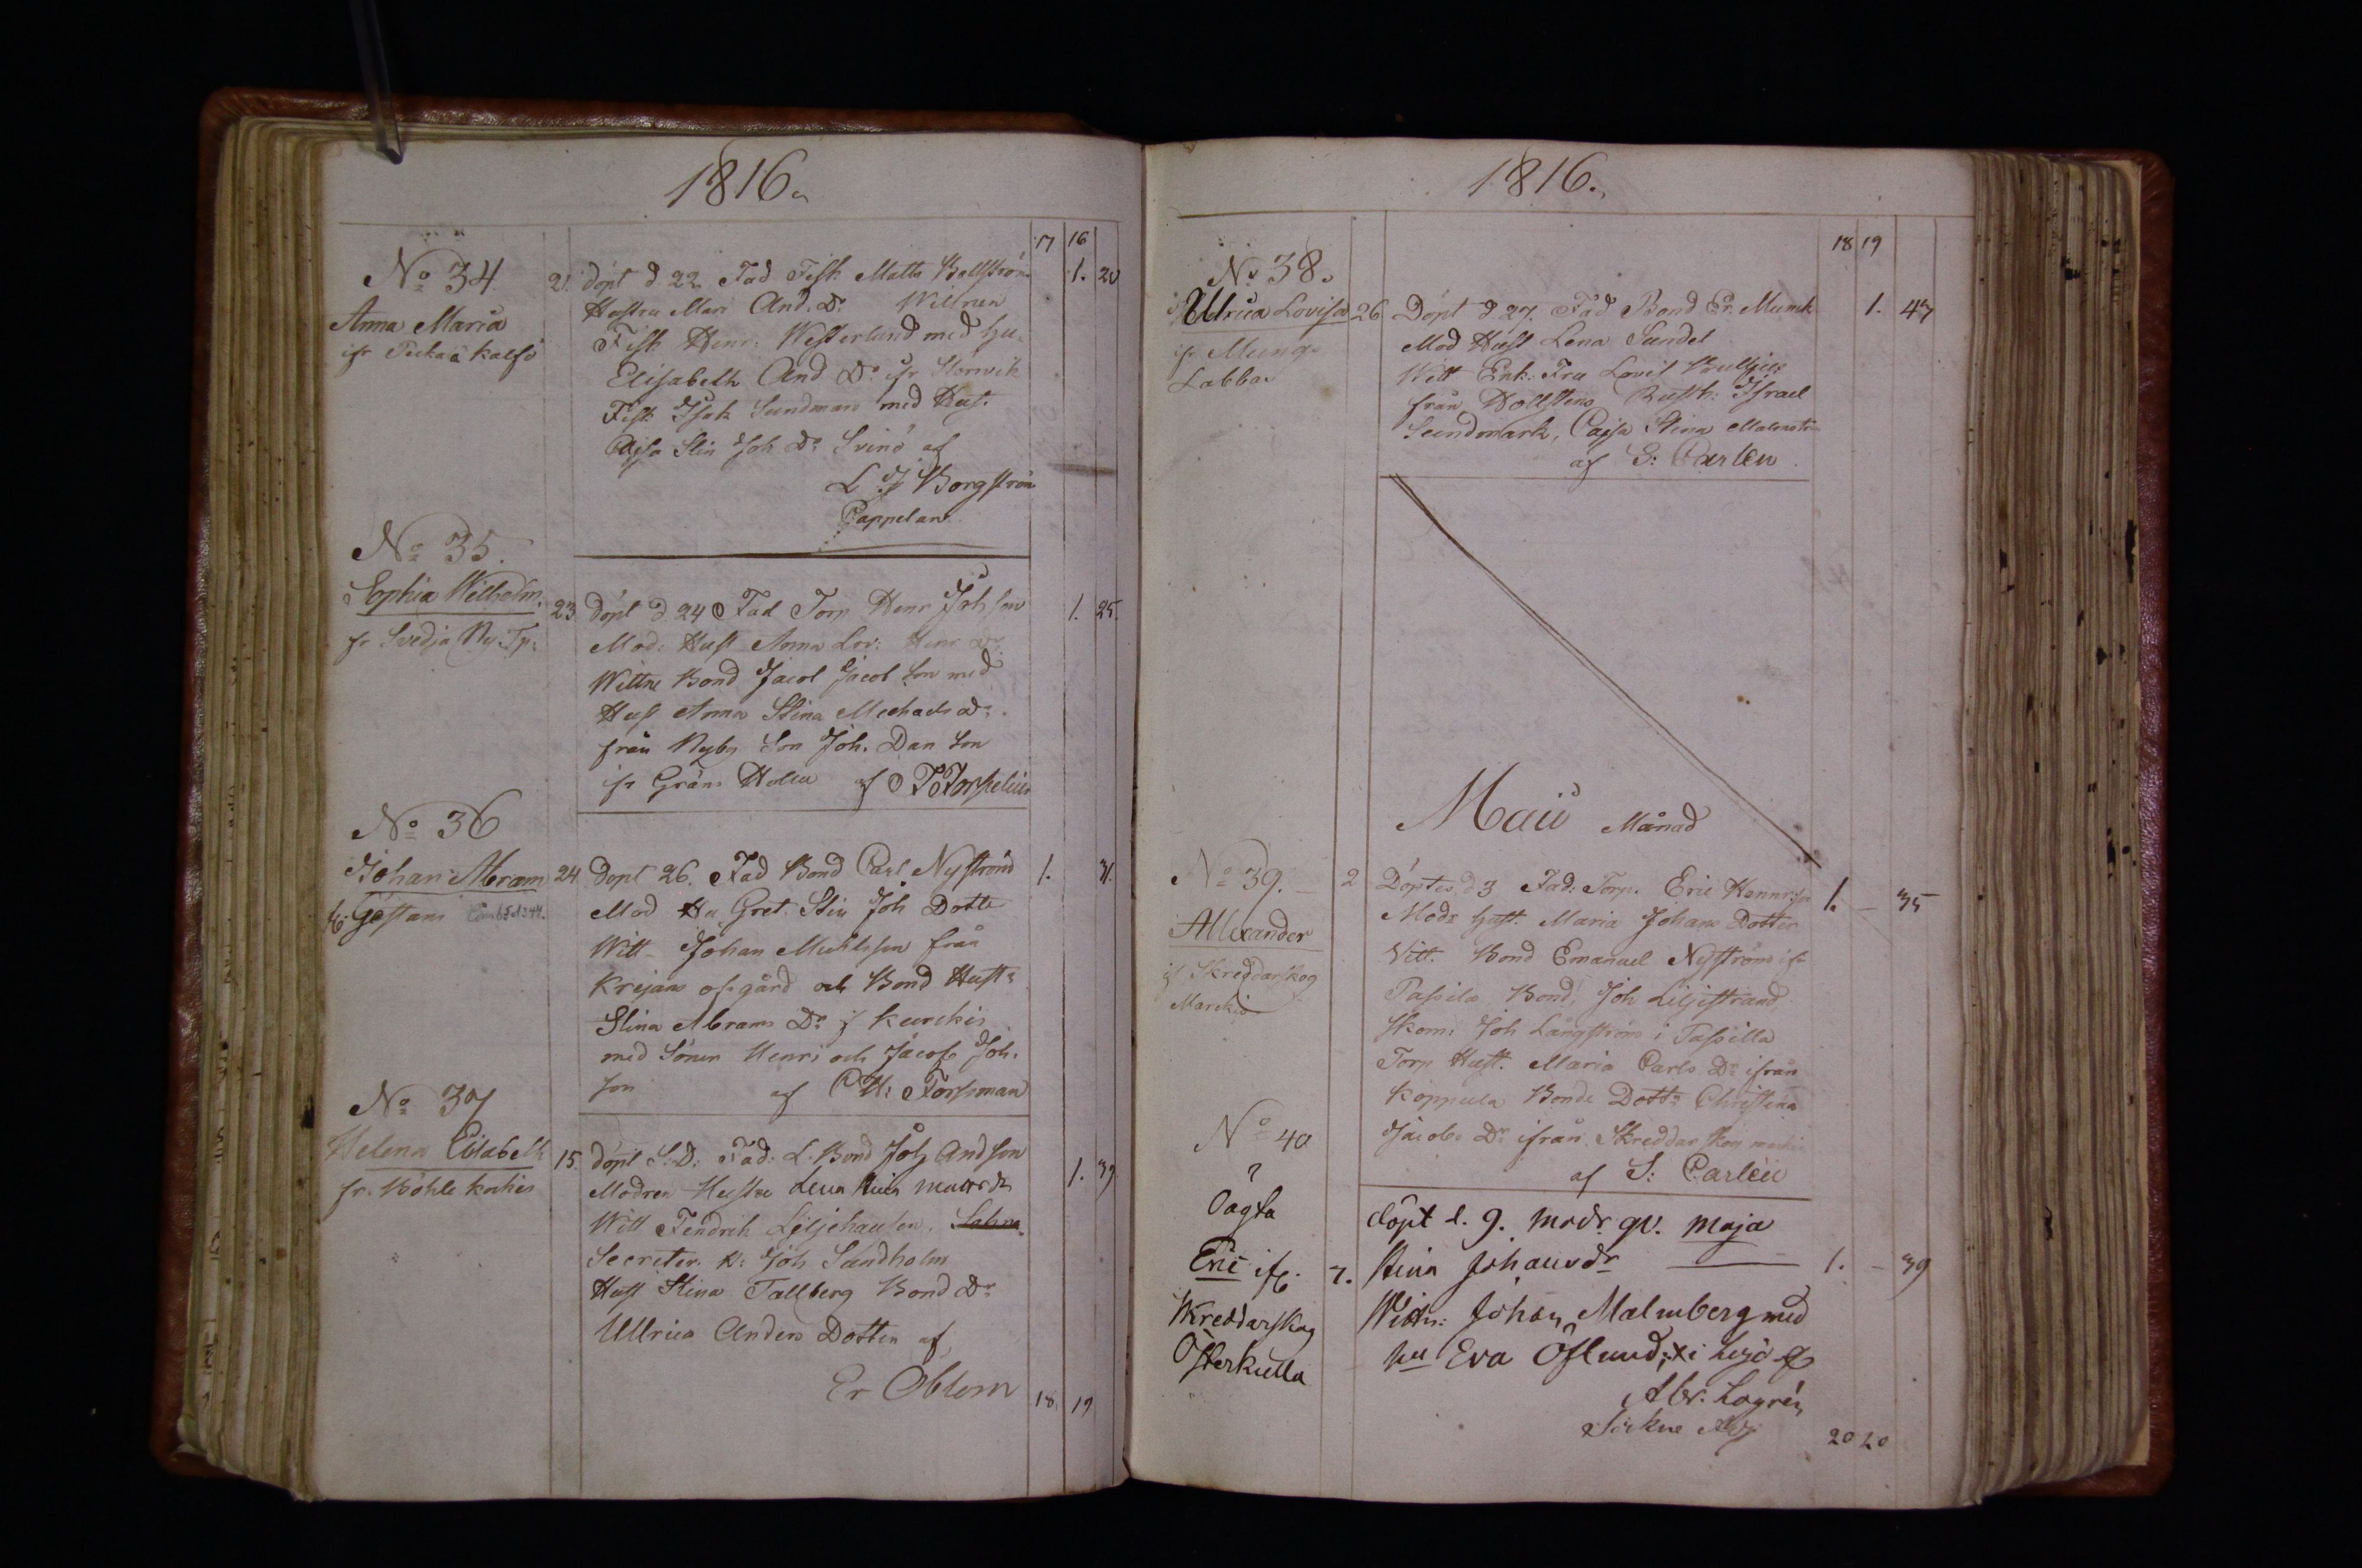 1816.
17 16
No 34.
Anna Maria
ifr Pickala kalfö
21. döpt d 22. Fad Fisk Matts Bollström 1. 20
Hustru Mari And. Dr Wittnen
Fisk Henr: Westerlund med Hu:
Elisabeth And Dr ifr Störsvik
Fisk Isak Sundman med Hust.
Cajsa Stin Joh Dr Svinö af
L J Borgström
Cappelan
No 35.
Sophia Wilhelm:
fr Svedja Ny Tp:
23 döpt d. 24 Fad Torp Henr Joh son 1. 25.
Mod: Hust Anna Lov: Henr Dr
Wittne Bond Jacob Jacob son med
Hust Anna Stina Michaels dr.
från Nyby Son Joh. Dan son
ifr Gräns Holm af
No 36
Johan Abram
fr. Gästans
24. Döpt 26. Fad Bond Carl Nyström 1. 31.
Mod Hu Gret. Stin Joh Dotte
Witt Johan Michelsson från
Krejans ofgård och Bond Hust:
Stina Abrams Dr if Kurckis
med Söner Henri och Jacob Joh.
son af C H: Forssman
No 37
Helena Elisabeth
fr. Böhle kockis
15. döpt S. D. Fad: L. Bond Joh And son 1. 39
Modren Hustru Lena Stina
Witt Fendrik Liljehausen.
Secreter. H: Joh Sundholm
Hust Stina Tallberg Bond Dr
Ullrica Anders Dotter af
Er Öblom
18. 19
1816.
18 19
No 38.
Ullrica Lovisa
ifr Mung
Labbas
26 Döpt d. 27. Fad Bond Er. Munck 1. 47
Mod Hust Lena Sundel
Witt Enk: Fru Lovis
från Hollstens Rusth: Israel
Sundmark, Cajsa Stina Malmström
af S: Carlén
Maii Månad
No 39.
Allexander
if Skreddarskog
Marckis
2 Döptes d 3 Fad: Torp. Eric Hennrson 1. – 35
Mod: Hust. Maria Johans Dotter
Vitt. Bond Emanuel Nyström ifr
Passila Bond, Joh Liljestrand
Skom: Joh Långström i Passilla
Torp Hust. Maria Carls Dr ifrån
Koppula Bonde Dottr Christina
Jacobs Dr ifrån Skreddarskog
af S: Carlén
No 40
?
Oägta
Eric ifr.
Skreddarskog
Österkulla
7. döpt d. 9. modr qv. Maja
Stina Johansdr 1. – 39
Wittn: Johan Malmberg med
hu Eva Öflund,
Abr. Logrén
20 20